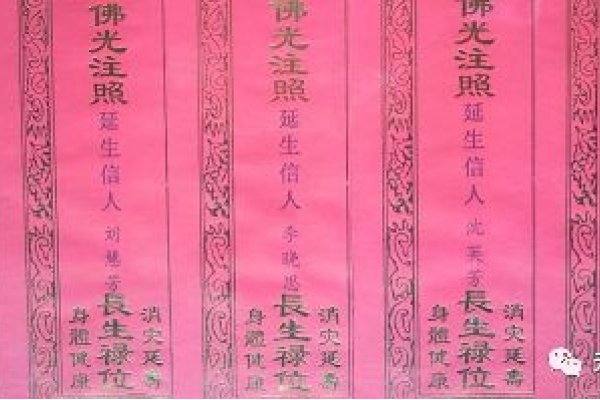 佛光注照
延生信人 刘慧芳
長生禄位
消灾延壽
身體健康
佛光注照
延生信人
長生禄位
消灾延壽
身體健康
佛光注照
延生信人
長生禄位
消灾延壽
身體健康